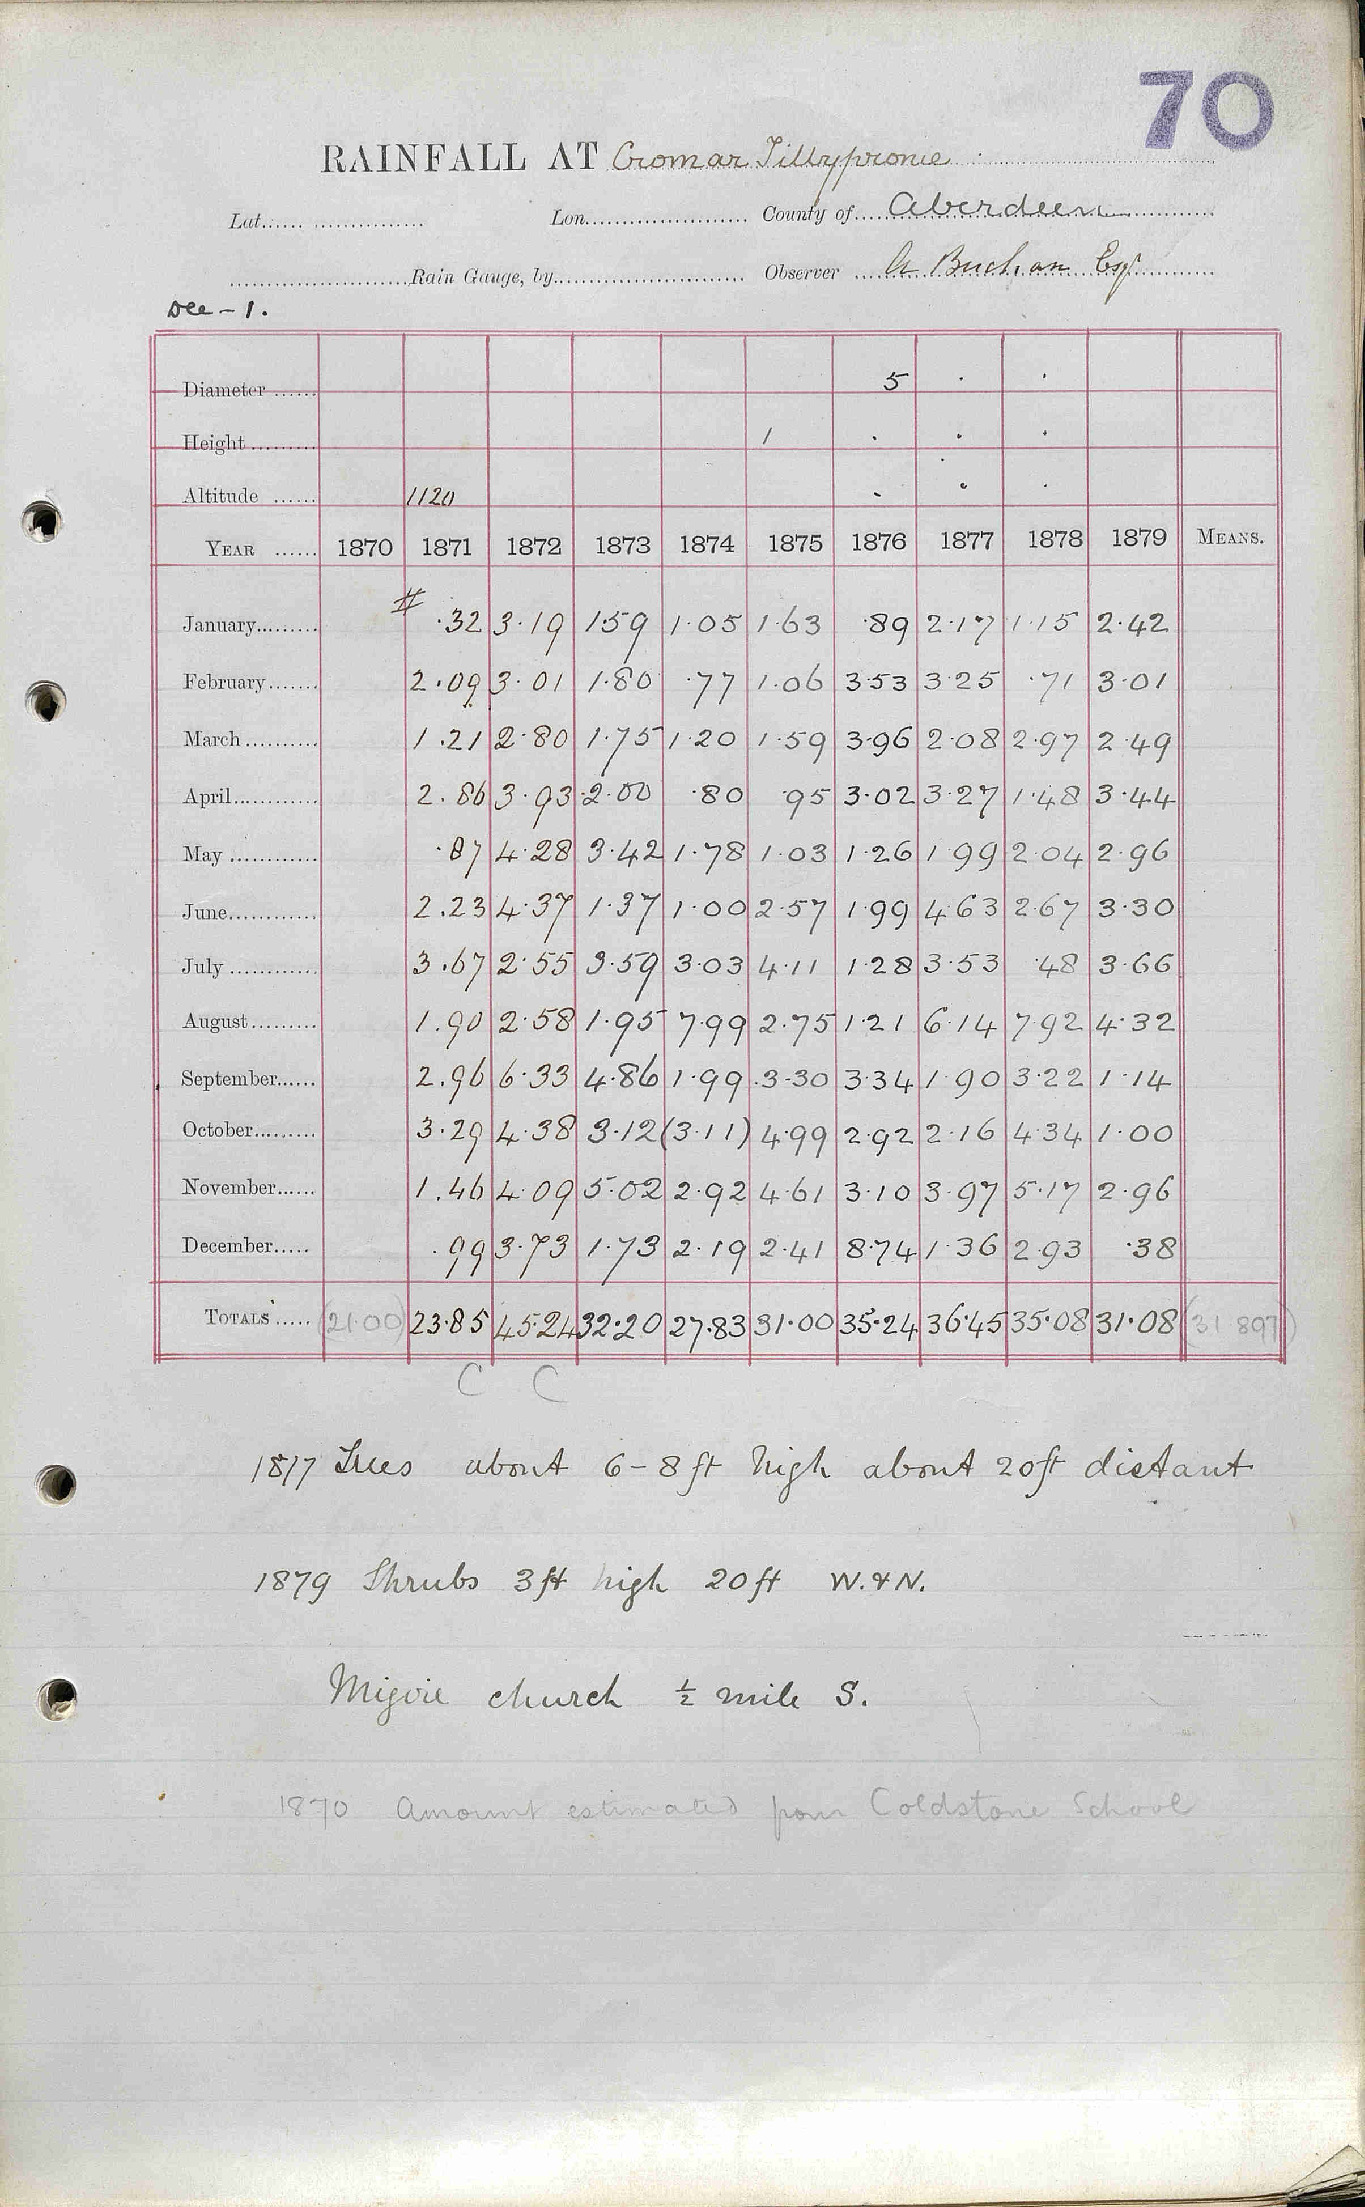 70
RAINFALL AT Cromar Tillypronie
Lat. Lon. County of Aberdeen
Rain Gauge, by Observer A Buchan Esqr
Dee - 1.
Diameter 5 . .
Height 1 . . .
Altitude 1120 . . .
YEAR 1870 1871 1872 1873 1874 1875 1876 1877 1878 1879 MEANS.
January # .32 3.19 1.59 1.05 1.63 .89 2.17 1.15 2.42
February 2.09 3.01 1.80 .77 1.06 3.53 3.25 .71 3.01
March 1.21 2.80 1.75 1.20 1.59 3.96 2.08 2.97 2.49
April 2.86 3.93 2.00 .80 .95 3.02 3.27 1.48 3.44
May .87 4.28 3.42 1.78 1.03 1.26 1.99 2.04 2.96
June 2.23 4.37 1.37 1.00 2.57 1.99 4.63 2.67 3.30
July 3.67 2.55 3.59 3.03 4.11 1.28 3.53 .48 3.66
August 1.90 2.58 1.95 7.99 2.75 1.21 6.14 7.92 4.32
September 2.96 6.33 4.86 1.99 3.30 3.34 1.90 3.22 1.14
October 3.29 4.38 3.12 (3.11) 4.99 2.92 2.16 4.34 1.00
November 1.46 4.09 5.02 2.92 4.61 3.10 3.97 5.17 2.96
December .99 3.73 1.73 2.19 2.41 8.74 1.36 2.93 .38
TOTALS (21.00) 23.85 45.24 32.20 27.83 31.00 35.24 36.45 35.08 31.08 (31 897)
C C
1877 Trees about 6-8 ft high about 20ft distant
1879 Shrubs 3ft high 20ft W. & N.
Migvie church ½ mile S.
1870 Amount estimated from Coldstone School